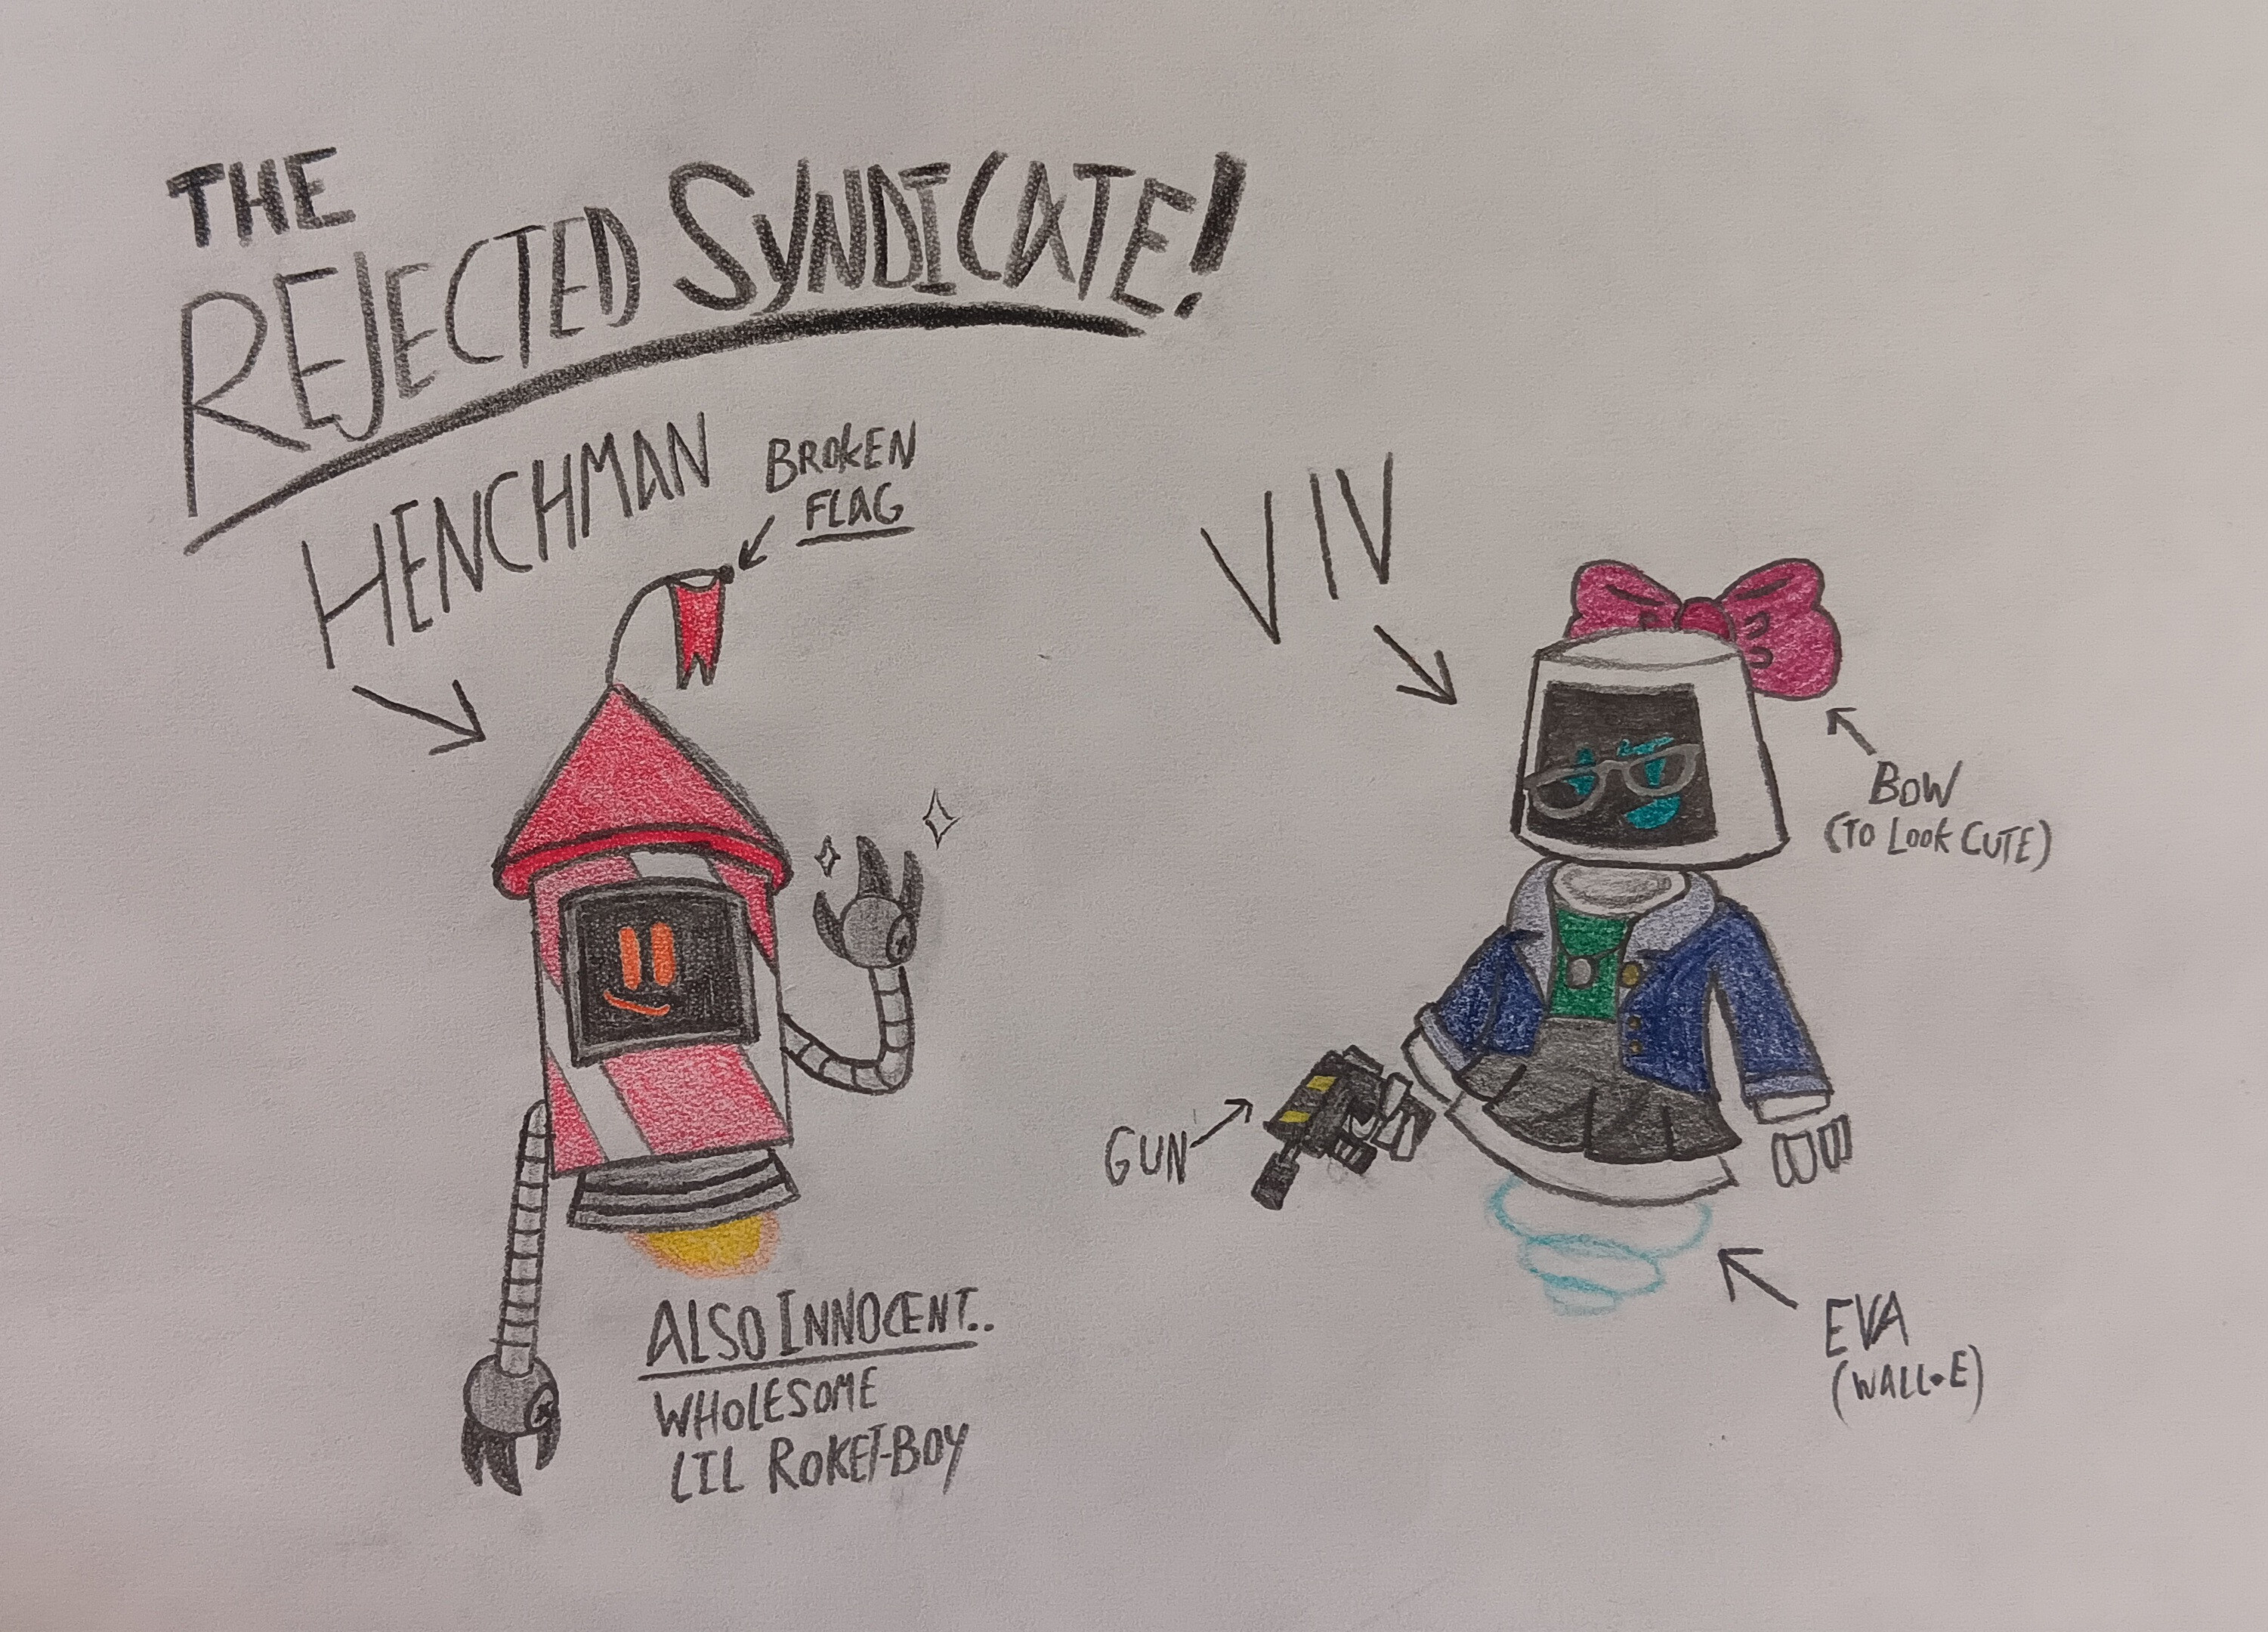 THE
REJECTED SYNDICATE!
HENCHMAN
BROKEN
FLAG
VIV
BOW
(TO LOOK CUTE)
GUN
ALSO INNOCENT..
WHOLESOME
LIL ROKET-BOY
EVA
(WALL•E)